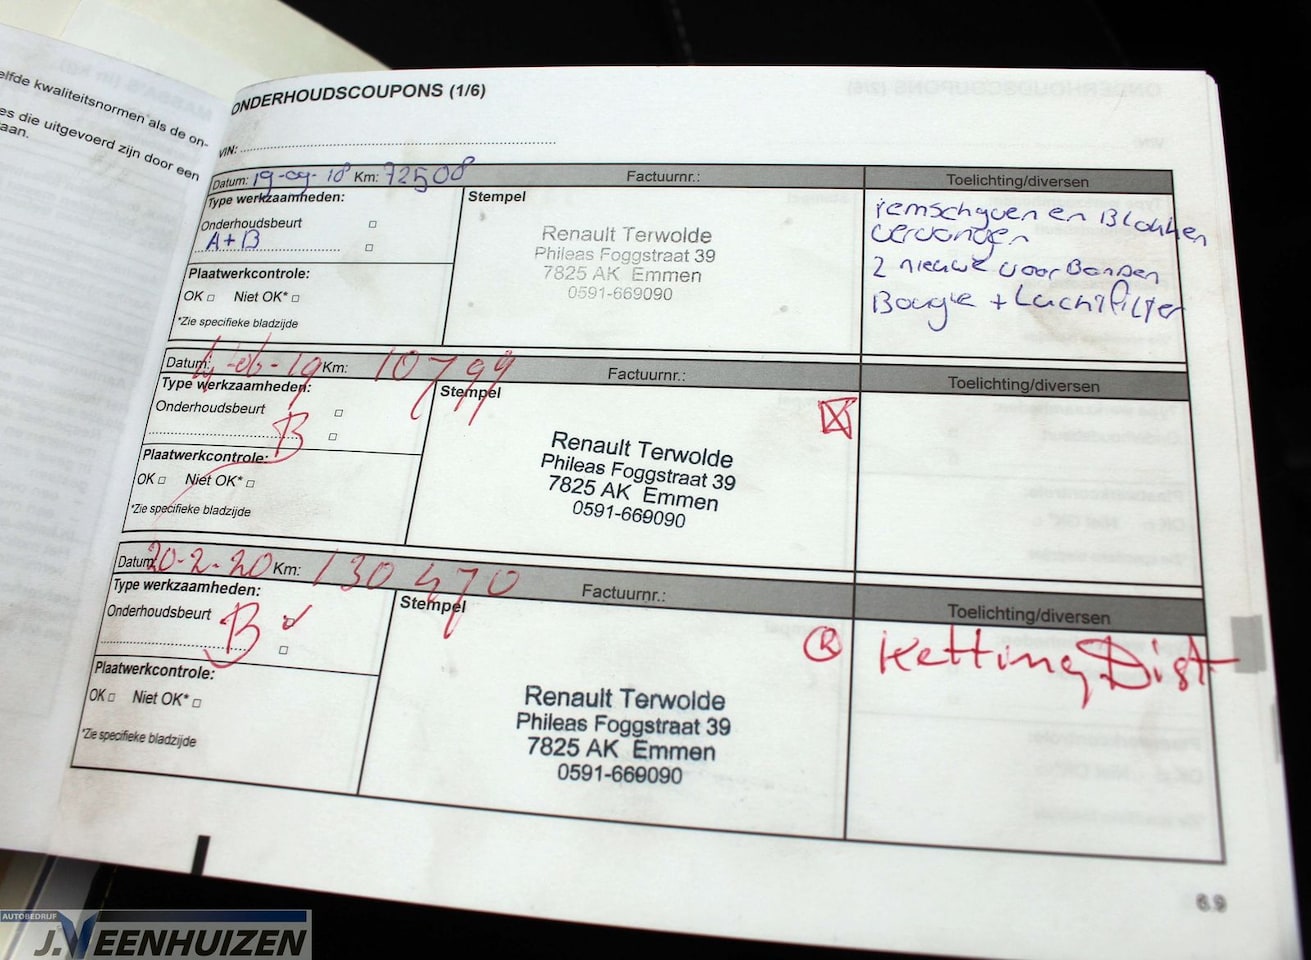 elfde kwaliteitsnormen als de on-
es die uitgevoerd zijn door een
aan.
ONDERHOUDSCOUPONS (1/6)
VIN:
Datum: 19-09-18 Km: 72508 Factuurnr.: Toelichting/diversen
Type werkzaamheden:
Onderhoudsbeurt
A+B
Plaatwerkcontrole:
OK Niet OK*
*Zie specifieke bladzijde
Stempel
Renault Terwolde
Phileas Foggstraat 39
7825 AK Emmen
0591-669090
remschyven en Blokken
vervangen
2 nieuwe voor Banden
Bougie + Luchtfilter
Datum: 4-06-19 Km: 10799 Factuurnr.: Toelichting/diversen
Type werkzaamheden:
Onderhoudsbeurt
B
Plaatwerkcontrole:
OK Niet OK*
*Zie specifieke bladzijde
Stempel
Renault Terwolde
Phileas Foggstraat 39
7825 AK Emmen
0591-669090
Datum: 20-2-20 Km: 130470 Factuurnr.: Toelichting/diversen
Type werkzaamheden:
Onderhoudsbeurt
B
Plaatwerkcontrole:
OK Niet OK*
*Zie specifieke bladzijde
Stempel
R
Renault Terwolde
Phileas Foggstraat 39
7825 AK Emmen
0591-669090
Ketting Dist
6.9
AUTOBEDRIJF
J.VEENHUIZEN